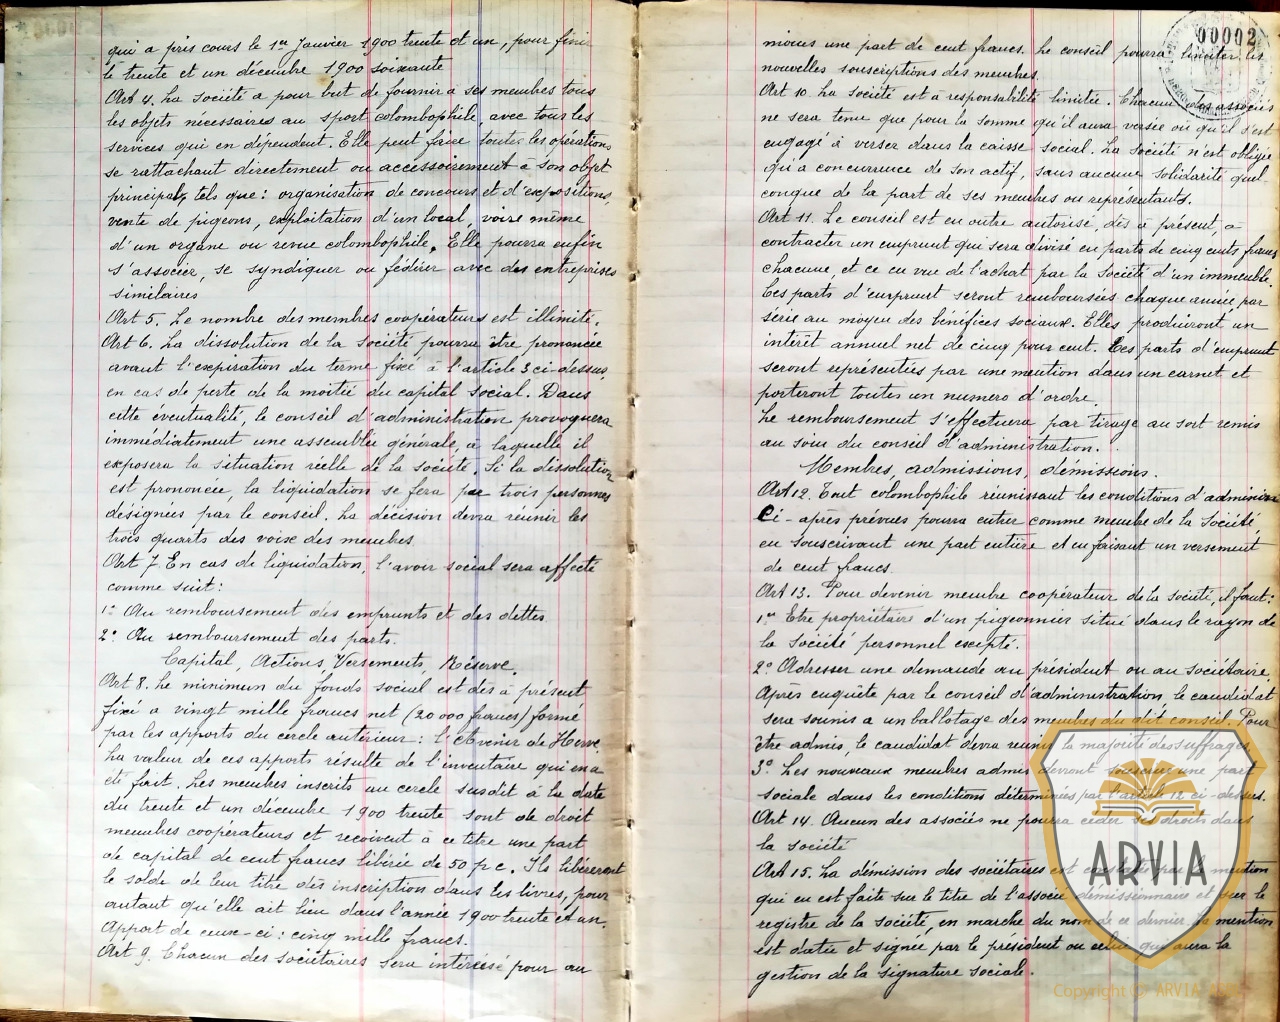 qui a pris cours le 1er Janvier 1900 trente et un, pour finir
le trente et un décembre 1900 soixante
Art 4. La Société a pour but de fournir à ses membres tous
les objets nécessaires au sport colombophile, avec tous les
services qui en dépendent. Elle peut faire toutes les opérations
se rattachant directement ou accessoirement à son objet
principal, tels que: organisation de concours et d'expositions,
vente de pigeons, exploitation d'un local, voire même
d'un organe ou revue colombophile. Elle pourra enfin
s'associer, se syndiquer ou fédérer avec des entreprises
similaires
Art 5. Le nombre des membres coopérateurs est illimité.
Art 6. La dissolution de la Société pourra être prononcée
avant l'expiration du terme fixé à l'article 3 ci-dessus,
en cas de perte de la moitié du capital social. Dans
cette éventualité, le conseil d'administration provoquera
immédiatement une assemblée générale, à laquelle il
exposera la situation réelle de la société. Si la dissolution
est prononcée, la liquidation se fera par trois personnes
désignées par le conseil. La décision devra réunir les
trois quarts des voix des membres
Art 7 En cas de liquidation, l'avoir social sera affecté
comme suit:
1° Au remboursement des emprunts et des dettes
2° Au remboursement des parts.
Capital, Actions Versements, Réserve
Art 8. Le minimum du fonds social est dès à présent
fixé a vingt mille francs net (20 000 francs) formé
par les apports du cercle antérieur: l'Avenir de Herve
La valeur de ces apports résulte de l'inventaire qui en a
été fait. Les membres inscrits au cercle susdit à la date
du trente et un décembre 1900 trente sont de droit
membres coopérateurs et reçoivent à ce titre une part
de capital de cent francs libérée de 50 p.c. Ils libéreront
le solde de leur titre dès inscription dans les livres, pour
autant qu'elle ait lieu dans l'année 1900 trente et un.
Apport de ceux-ci: cinq mille francs.
Art 9. Chacun des sociétaires sera intéressé pour au
00002
moins une part de cent francs. Le conseil pourra limiter les
nouvelles souscriptions des membres.
Art 10. La Société est à responsabilité limitée. Chacun des associés
ne sera tenu que pour la somme qu'il aura versée ou qu'il s'est
engagé à verser dans la caisse social. La Société n'est obligée
qu'a concurrence de son actif, sans aucune solidarité quel-
conque de la part de ses membres ou représentants.
Art 11. Le conseil est en outre autorisé, dès à présent, à
contracter un emprunt qui sera divisé en parts de cinq cents francs
chacune, et ce en vue de l'achat par la Société d'un immeuble.
Ces parts d'emprunt seront remboursées chaque année par
série au moyen des bénéfices sociaux. Elles produiront un
intérêt annuel net de cinq pour cent. Les parts d'emprunt
seront représentées par une mention dans un carnet et
porteront toutes un numéro d'ordre.
Le remboursement s'effectuera par tirage au sort remis
au soin du conseil d'administration.
Membres, admissions, démissions.
Art 12. Tout colombophile réunissant les conditions d'admission
ci-après prévues pourra entrer comme membre de la Société
en souscrivant une part entière et en faisant un versement
de cent francs.
Art 13. Pour devenir membre coopérateur de la Société, il faut:
1° Etre propriétaire d'un pigeonnier situé dans le rayon de
la Société personnel excepté.
2° Adresser une demande au président ou au sociétaire.
Après enquête par le conseil d'administration le candidat
sera soumis a un ballotage des membres du dit conseil. Pour
être admis, le candidat devra réunir la majorité des suffrages
3° Les nouveaux membres admis devront souscrire une part
sociale dans les conditions déterminées par l'article 12 ci-dessus.
Art 14. Aucun des associés ne pourra céder ses droits dans
la société
Art 15. La démission des sociétaires est constatée par la mention
qui en est faite sur le titre de l'associé démissionnaire et sur le
registre de la société, en marche du nom de ce dernier la mention
est datée et signée par le président ou celui qui aura la
gestion de la signature sociale.
ARVIA
Copyright © ARVIA